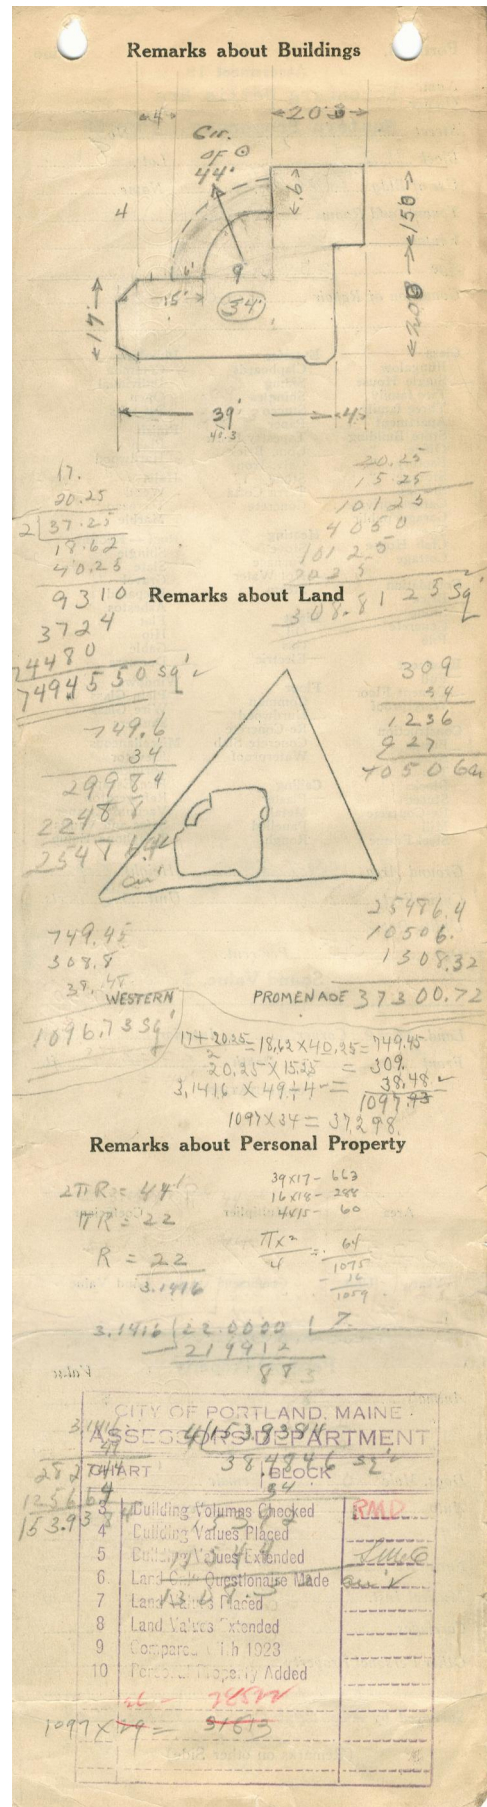 Remarks about Buildings
4
20'3
Cir.
of ⊙
44'
6
4
150
6'
9
15'
34'
17'
39'
4
41.3
17.
20.25
2 37.25
18.62
40.25
9310
3724
74480
7494550 sq'
20.25
15.25
10125
4050
10125
2025
308.8125 sq'
Remarks about Land
309
34
1236
927
749.6
34
29984
22488
cu'
25486.4
10506.
1308.32
37300.72
749.45
308.8
38.48
1096.73 sq'
WESTERN PROMENADE
18.62 X 40.25 = 749.45
20.25 X 15.25 = 309.
3.1416 X 49 ÷ 4 = 38.48
1097.43
1097 X 34 = 37,298.
Remarks about Personal Property
2πR = 44'
πR = 22
R = 22
3.1416
39x17 - 663
16x18 - 288
4x15 - 60
πx²
4
= 64
1075
16
1059
3.1416 22.0000 7.
219912
883
CITY OF PORTLAND, MAINE
ASSESSORS DEPARTMENT
CHART BLOCK
3.1416
49
4 1538384
384846 sq'
34
3 Building Volumes Checked RMD
4 Building Values Placed
5 Building Values Extended
6 Land Questionaire Made
7 Land Values Placed
8 Land Values Extended
9 Compared With 1923
10 Personal Property Added
1097 X 29 = 31813